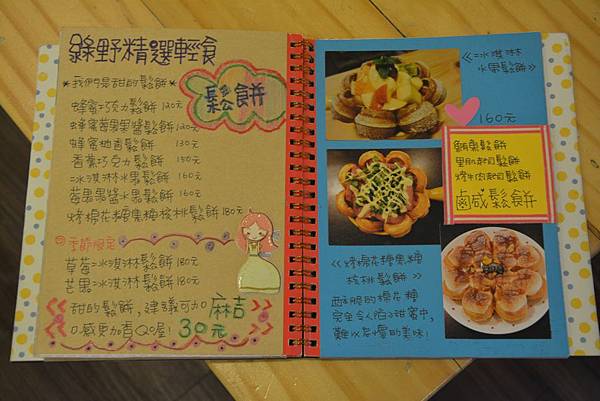 綠野精選輕食
*我們是甜的鬆餅*
鬆餅
蜂蜜巧克力鬆餅 120元
蜂蜜莓果果醬鬆餅 130元
蜂蜜柚香鬆餅 130元
香蕉巧克力鬆餅 150元
冰淇淋水果鬆餅 160元
莓果果醬水果鬆餅 160元
烤棉花糖焦糖核桃鬆餅 180元
季節限定
草莓冰淇淋鬆餅 180元
芒果冰淇淋鬆餅 180元
甜的鬆餅,建議可加 麻吉
口感更加香QQ喔! 30元
《冰淇淋
水果鬆餅》
160元
鮪魚鬆餅
里肌起司鬆餅
烤牛肉起司鬆餅
鹵咸鬆餅
《烤棉花糖焦糖
核桃鬆餅》
酥脆的棉花糖
完全令人陷入甜蜜中,
難以忘懷的美味!